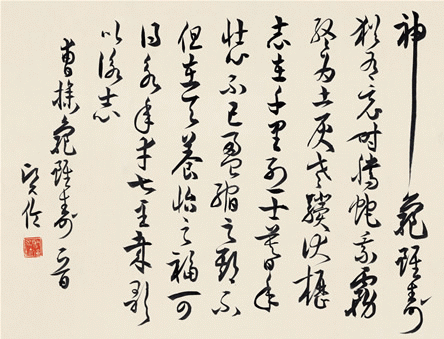 神龜雖壽
猶有竟時騰蛇乘霧
終為土灰老驥伏櫪
志在千里烈士暮年
壯心不已盈縮之期不
但在天養怡之福可
得永年幸甚至哉歌
以詠志
曹操龜雖壽一首